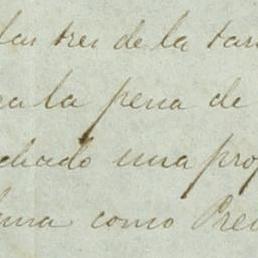 las tres de la tar
la pena de
chado una prop
como Pre